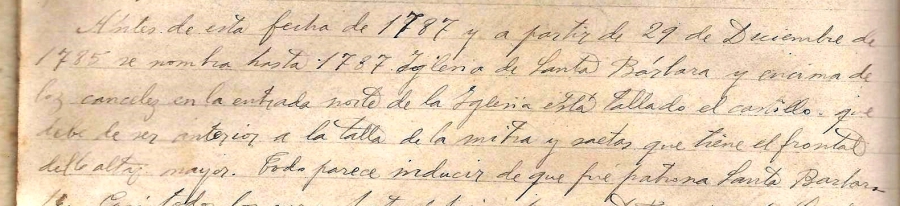 Antes de esta fecha de 1787 y a partir de 29 de Diciembre de
1785 se nombra hasta 1787 Iglesia de Santa Bárbara y encima de
los canceles en la entrada norte de la Iglesia está tallado el castillo que
debe de ser anterior a la talla de la mitra y saetas que tiene el frontal
del altar mayor. Todo parece inducir de que fué patrona Santa Barbara